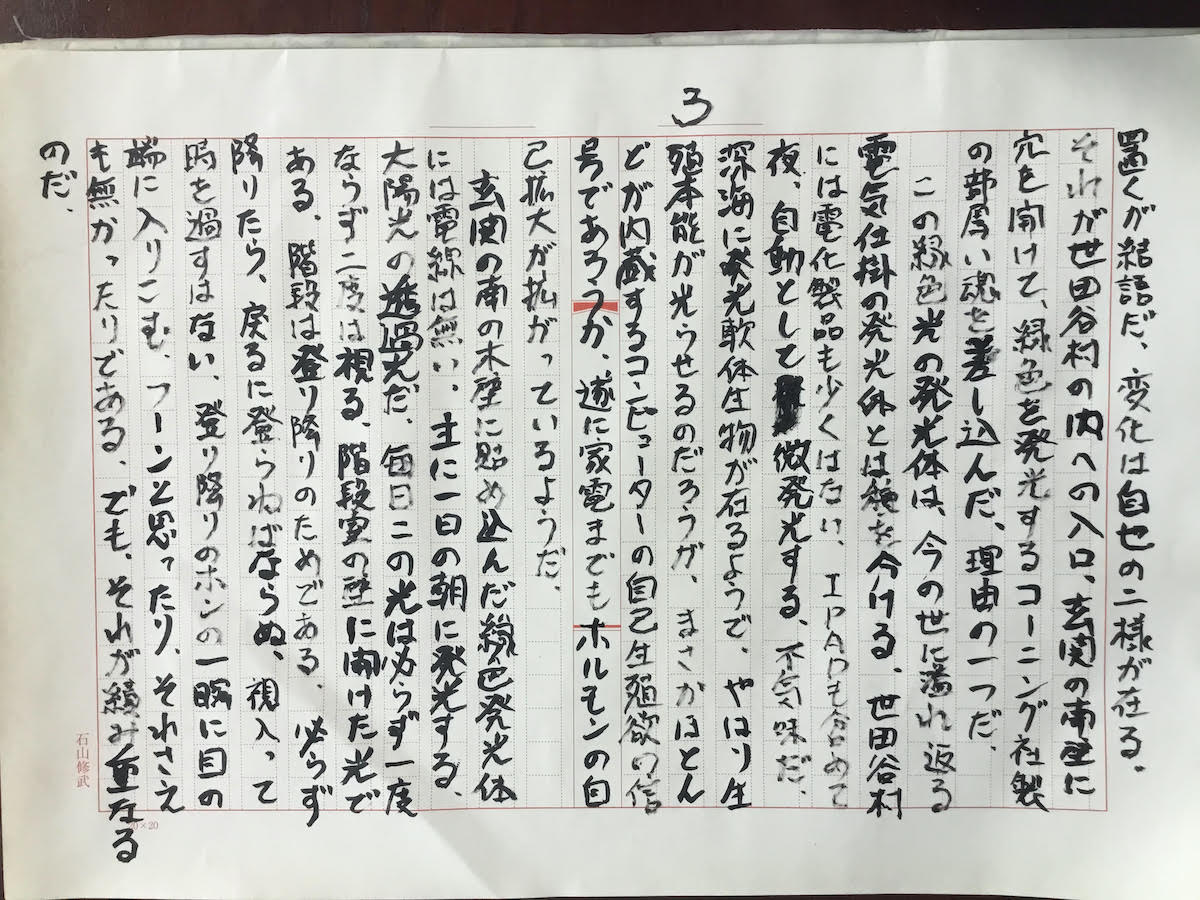 3
置くが結語だ、変化は自セの二様が在る、
それが世田谷村の内への入口、玄関の南壁に
穴を開けて、緑色を発光するコーニング社製
の部厚い塊を差し込んだ、理由の一つだ、
この緑色光の発光体は、今の世に溢れ返る
電気仕掛の発光体とは線を今ける、世田谷村
には電化製品も少くはない、IPADも含めて
夜、自動として微発光する、不気味だ、
深海に発光軟体生物が在るようで、やはり生
殖本能が光らせるのだろうが、まさかほとん
どが内蔵するコンピューターの自己生殖欲の信
号であろうか、遂に家電までもホルモンの自
己拡大が拡がっているようだ、
玄関の南の木壁に貼め込んだ緑色発光体
には電線は無い、主に一日の朝に発光する、
大陽光の透過光だ、毎日この光は必らず一度
ならず二度は視る、階段室の壁に開けた光で
ある、階段は登り降りのためである、必らず
降りたら、戻るに登らねばならぬ、視入って
時を過すはない、登り降りのホンの一瞬に目の
端に入りこむ、フーンと思ったり、それさえ
も無かったりである、でも、それが積み重なる
のだ、
石山修武
20×20